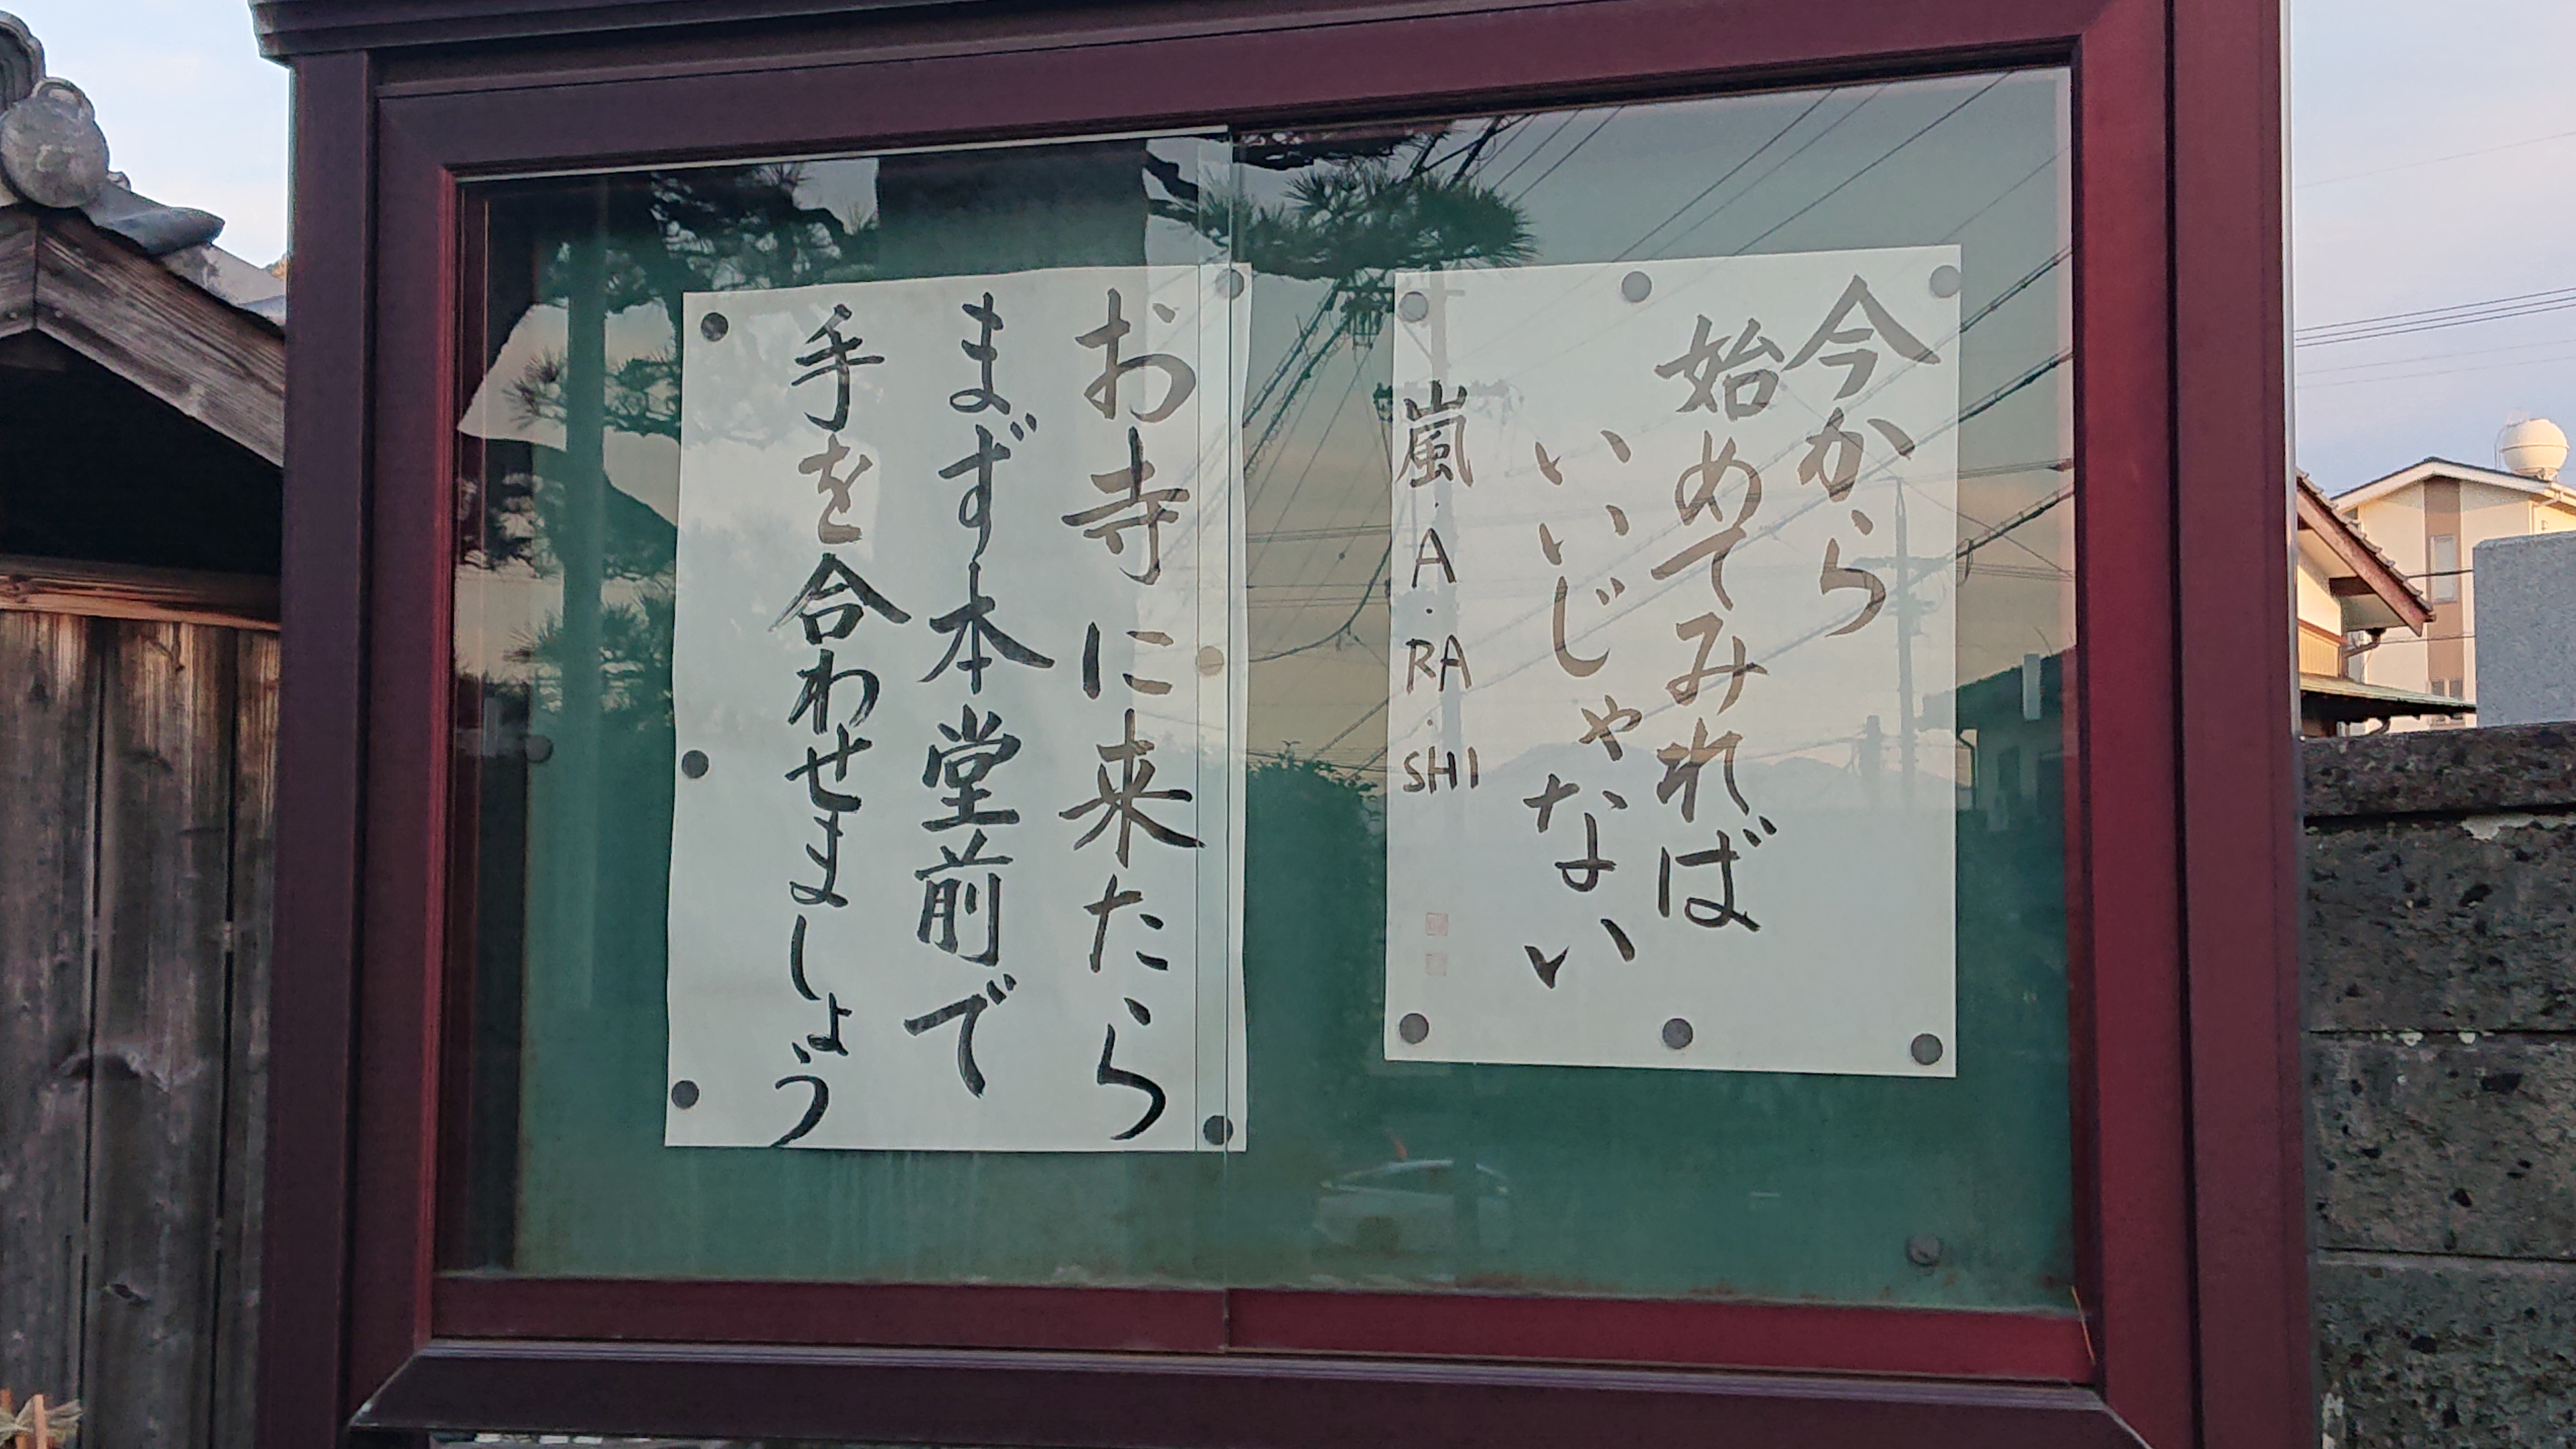 今から
始めてみれば
いいじゃない
嵐・A・RA・SHI
お寺に来たら
まず本堂前で
手を合わせましょう